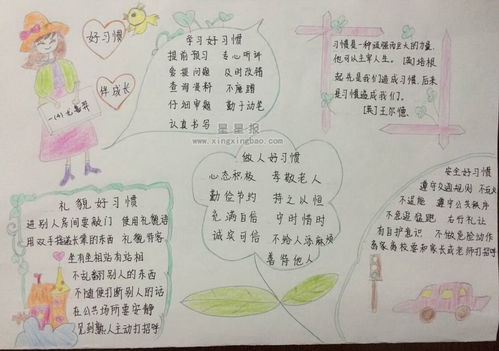 好习惯
伴成长
学习好习惯
提前预习 专心听讲
会提问题 及时改错
查询资料 不磨蹭
仔细审题 勤于动笔
认真书写
习惯是一种顽强而巨大的力量,
他可以主宰人生。[英]培根
起先是我们造成习惯,后来
是习惯造成我们。
[英]王尔德
星星报
www.xingxingbao.com
做人好习惯
心态积极 孝敬老人
勤俭节约 持之以恒
充满自信 守时惜时
诚实可信 不给人添麻烦
善待他人
礼貌好习惯
进别人房间要敲门 使用礼貌语
用双手接递长辈的东西 礼貌待客
坐有坐相站有站相
不乱翻别人的东西
不随便打断别人的话
在公共场所要安静
见到熟人主动打招呼
安全好习惯
遵守交通规则
不逗能 遵守公共秩序
不急追猛跑 右行礼让
有自护意识 不做危险动作
离家离校要和家长或老师打招呼